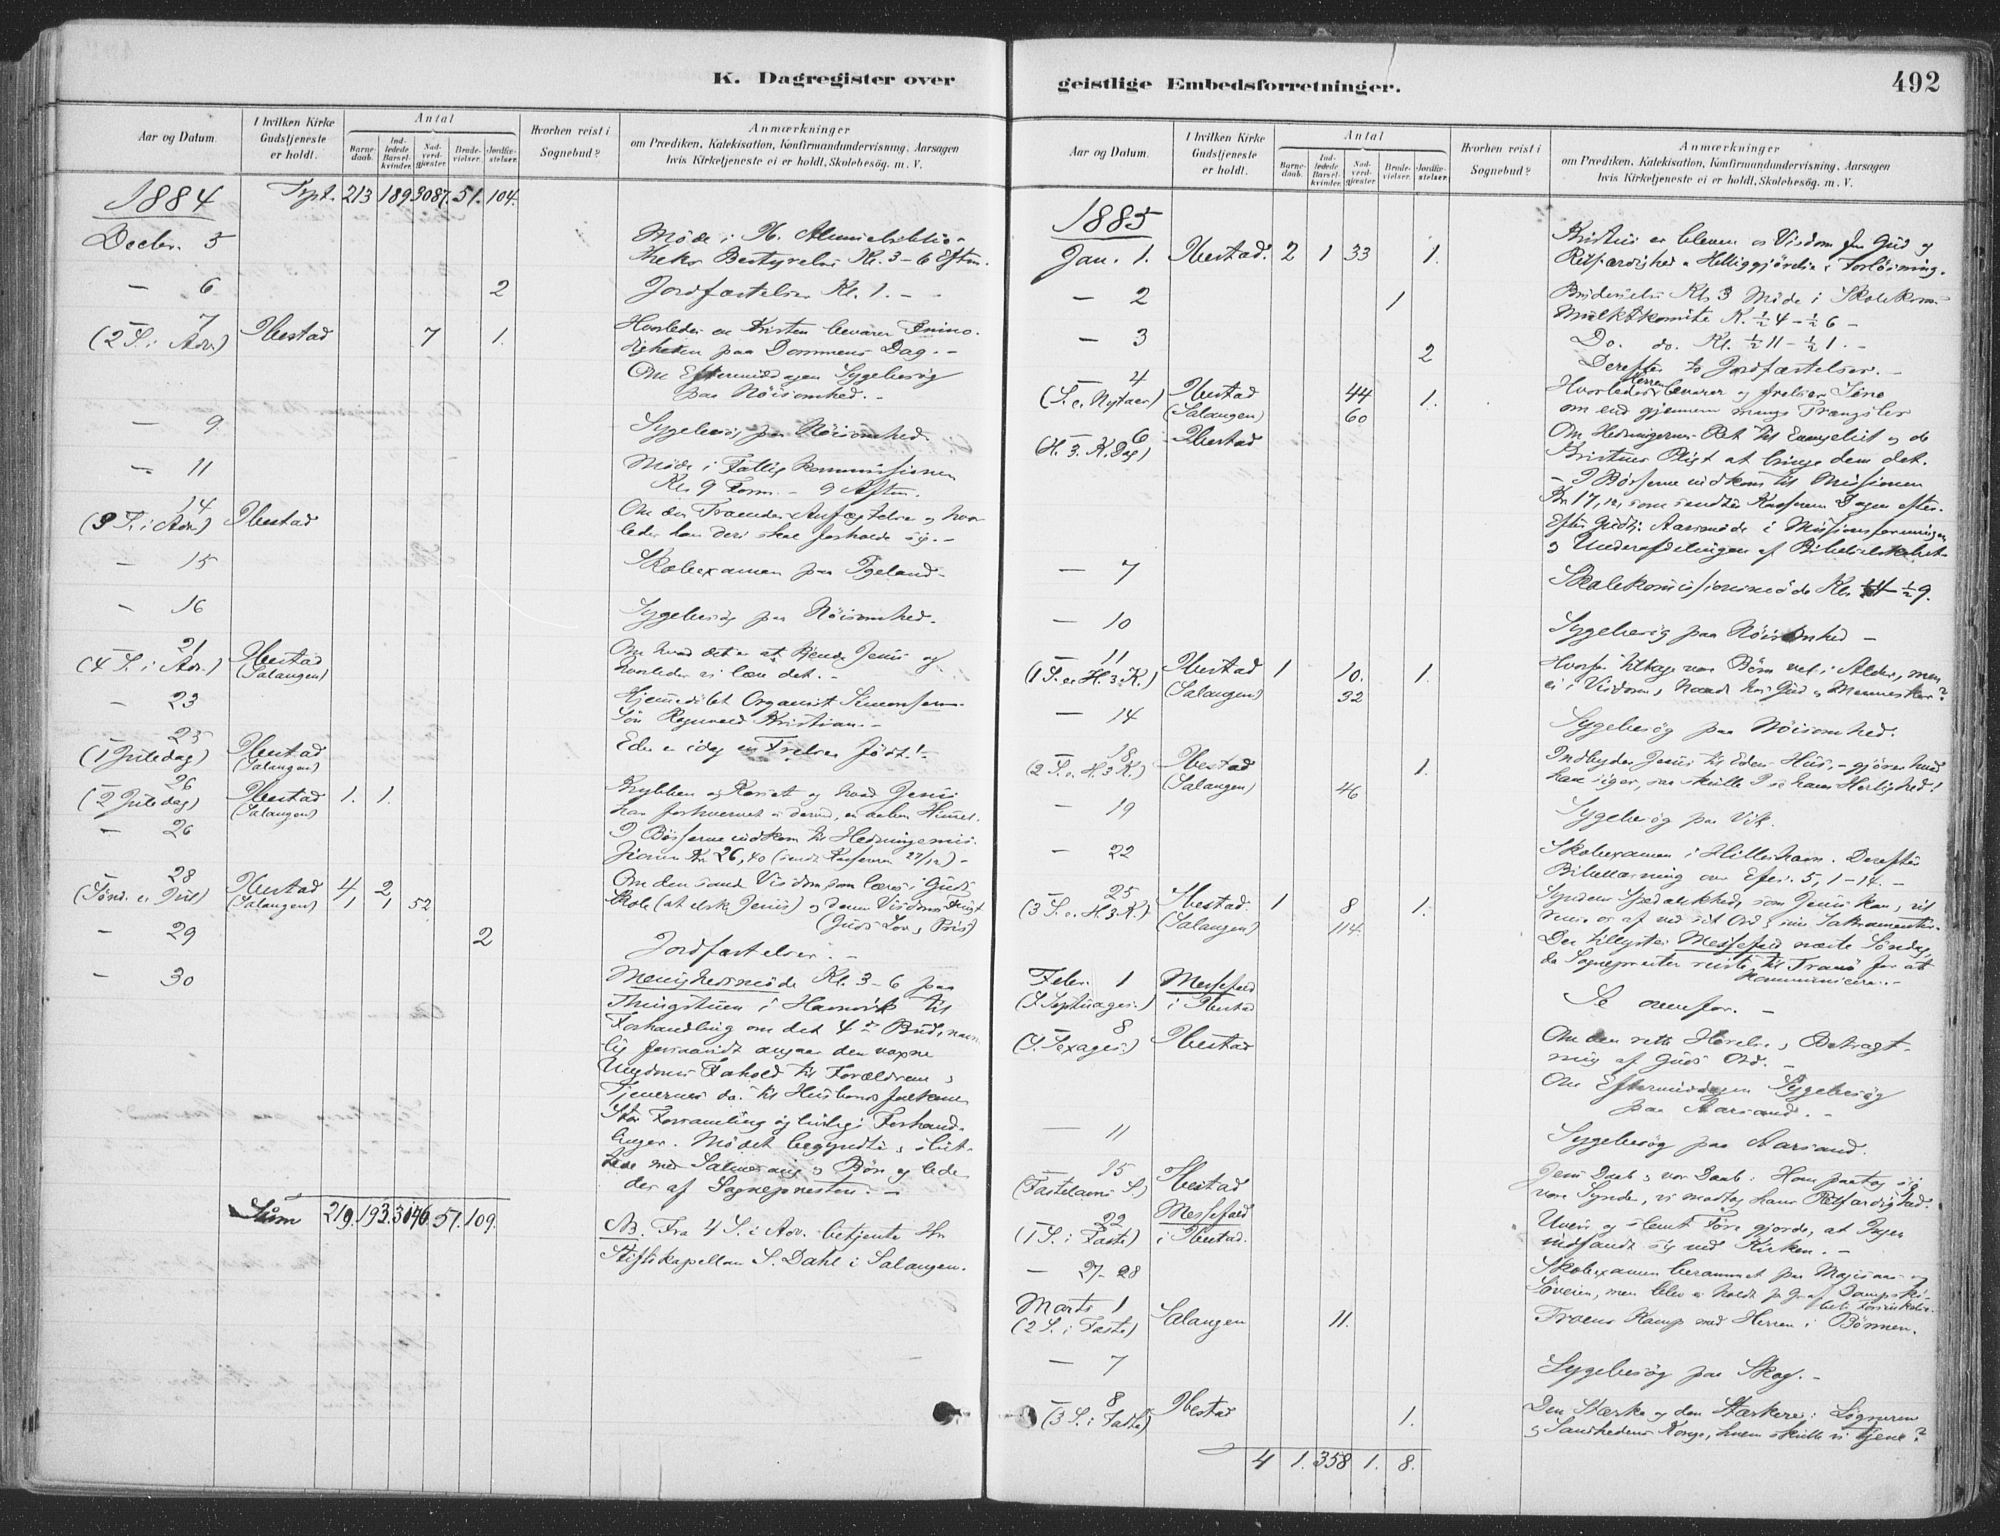 K. Dagregister over
Aar og Datum.
I hvilken Kirke Gudstjeneste er holdt.
Antal
Barnedaab.
Indledede Barselkvinder.
Nadverdgjester.
Brudevielser.
Jordfæstelser.
Hvorhen reist i Sognebud?
Anmærkninger
om Prædiken, Katekisation, Konfirmandundervisning, Aarsagen
hvis Kirketjeneste ei er holdt, Skolebesøg, m. V.
1884 Trpt. 213 189 3087. 51. 104.
Decbr. 5 Møde i
Bestyrelse Kl. 3-6 Eftm.
— 6 2 Jordfæstelser Kl. 1. —
— 7
(2 S. i Adv.) Ibestad 7 1. Hvorledes en Kristen bevarer Frimo-
digheden paa Dommens Dag. —
Om Eftermiddagen Sygebesøg
paa Nøisomhed. —
— 9. Sygebesøg paa Nøisomhed.
— 11 Møde i Fattigkommissionen
Kl. 9 Form. — 9 Aften.
— 14
(3 S. i Adv.) Ibestad Om den Troendes Anfægtelser og hvor-
ledes han deri skal forholde sig. —
— 15 Skoleexamen paa
— 16 Sygebesøg paa Nøisomhed.
— 21
(4 S. i Adv.) Ibestad
(Salangen) Om hvad det er at kjende Jesus og
hvorledes vi lære det. —
— 23 Hjemmedøbt Organist Simonsens
Søn Ragnvald Kristian. —
— 25
(1 Juledag) Ibestad
(Salangen) Eder er idag en Frelser født! —
— 26
(2 Juledag) Ibestad 1. 1. Krybben og Korset og hvad Jesus
(Salangen) har forhvervet os derved, en aaben Himmel.
— 26 I Bøsserne indkom til Hedningemis-
sionen Kr. 26,40 (sendt Kassereren 27/12) —
— 28
(Sønd. e. Jul) Ibestad 4 2 Om den sande Visdom som læres i Guds
(Salangen) 1 1 52. Skole (at elske Jesus) og denne Visdoms Frugt
(Guds Lov, Pris)
— 29 2 Jordfæstelser. —
— 30 Menighedsmøde Kl. 3-6 paa
Thingstuen i Hamnvik til
Forhandling om det 4de Bud, navn-
lig forsaavidt angaar den voxne
Ungdoms Forhold til Forældrene,
Tjenernes do. til Husbondsfolkene.
Stor Forsamling og livlige Forhand-
linger. Mødet begyndte, slut-
tede med Salmesang, Bøn og lede-
des af Sognepresten. —
Sum 219. 193. 3146. 51. 109.
NB. Fra 4 S. i Adv. betjente Hr.
Stiftskapellan S. Dahl i Salangen.
geistlige Embedsforretninger.
492
Aar og Datum.
I hvilken Kirke Gudstjeneste er holdt.
Antal
Barnedaab.
Indledede Barselkvinder.
Nadverdgjester.
Brudevielser.
Jordfæstelser.
Hvorhen reist i Sognebud?
Anmærkninger
om Prædiken, Katekisation, Konfirmandundervisning, Aarsagen
hvis Kirketjeneste ei er holdt, Skolebesøg, m. V.
1885
Jan. 1. Ibestad. 2 1 33 1. Kristus er bleven os Visdom fra Gud og
Retfærdighed, Helliggjørelse, Forløsning.
— 2 1 Brudevielse Kl. 3 Møde i Skolekom-
Kl. ½4 - ½6 —
— 3 2 Do. do. Kl. ½11 - ½1. —
Derefter to Jordfæstelser. —
— 4
(S. e. Nytaar) Ibestad 44 1. Hvorledes Herren bevarer og frelser Sine
(Salangen) 60 om end gjennem mange Trængsler
— 6
(H. 3. K. Dag) Ibestad Om Hedningernes Ret til Evangeliet og de
Kristnes Pligt at bringe dem det.
— I Bøsserne indkom til Missionen
Kr. 17,12, som sendtes Kassereren Dagen efter.
Efter Gudtj. Aarsmøde i Missionsforeningen
og Underafdelingen af Bibelselskabet —
— 7 Skolekomissionsmøde Kl. 4 - ½9.
— 10 Sygebesøg paa Nøisomhed —
— 11
(1 S. e. H. 3. K.) Ibestad 1 10. 1. Hvorfor tiltage vor Børn vel i Alder, men
(Salangen) 32 ei i Visdom, Naade hos Gud og Mennesker?
— 14 Sygebesøg paa Nøisomhed.
— 18
(2 S. e. H. 3 K.) Ibestad 1. Indbyder Jesus til Eders Hus, — gjører hvad
(Salangen) 46 han siger, saa skulle I se hans Herlighed!
— 19 Sygebesøg paa Vik.
— 22 Skoleexamen i Hilleshavn. Derefter
Bibellæsning over Efes. 5, 1-14. —
— 25
(3 S. e. H. 3 K.) Ibestad. 1 8 1. Syndens Spedalskhed, som Jesus kan, vil
(Salangen) 114. rense os af ved sit Ord, sine Sakramenter.
Der tillystes Messefald næste Søndag,
da Sognepresten reiste til Tranø for at
kommunicere. —
Febr. 1
(S. Septuages.) Messefald
i Ibestad Se ovenfor. —
— 8
(S. Sexages.) Ibestad Om den rette Hørelse, Betragt-
ning af Guds Ord. —
Om Eftermiddagen Sygebesøg
paa Aarsand. —
— 11 Sygebesøg paa Aarsand.
— 15
(Fastelavns S.) Ibestad Jesu Daab, vor Daab: Han paatog sig
vore Synder, vi modtog hans Retfærdighed.
— 22
(1 S. i Faste) Messefald
i Ibestad. Uveir og slemt Føre gjorde, at Ingen
indfandt sig ved Kirken. —
— 27-28 Skoleexamen berammet paa og
men blev ei holdt p. Gr. af Dampski-
bets Forsinkelse.
Marts 1
(2 S. i Faste) Salangen 11. Troens Kamp med Herren i Bønnen.
— 7 Sygebesøg paa Skog. —
— 8
(3 S. i Faste) Ibestad 1. Den Stærke og den Stærkere: Løgneren
og Sandhedens Konge, hvem skulle vi tjene?
4 1. 358 1. 8.